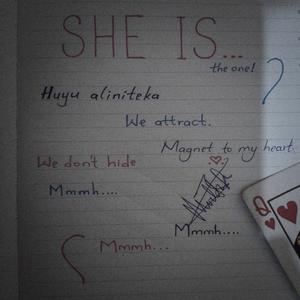 SHE IS...
the one!
Huyu aliniteka
We attract.
Magnet to my heart
We don't hide
Mmmh....
Mmmh....
Mmmh...
Q